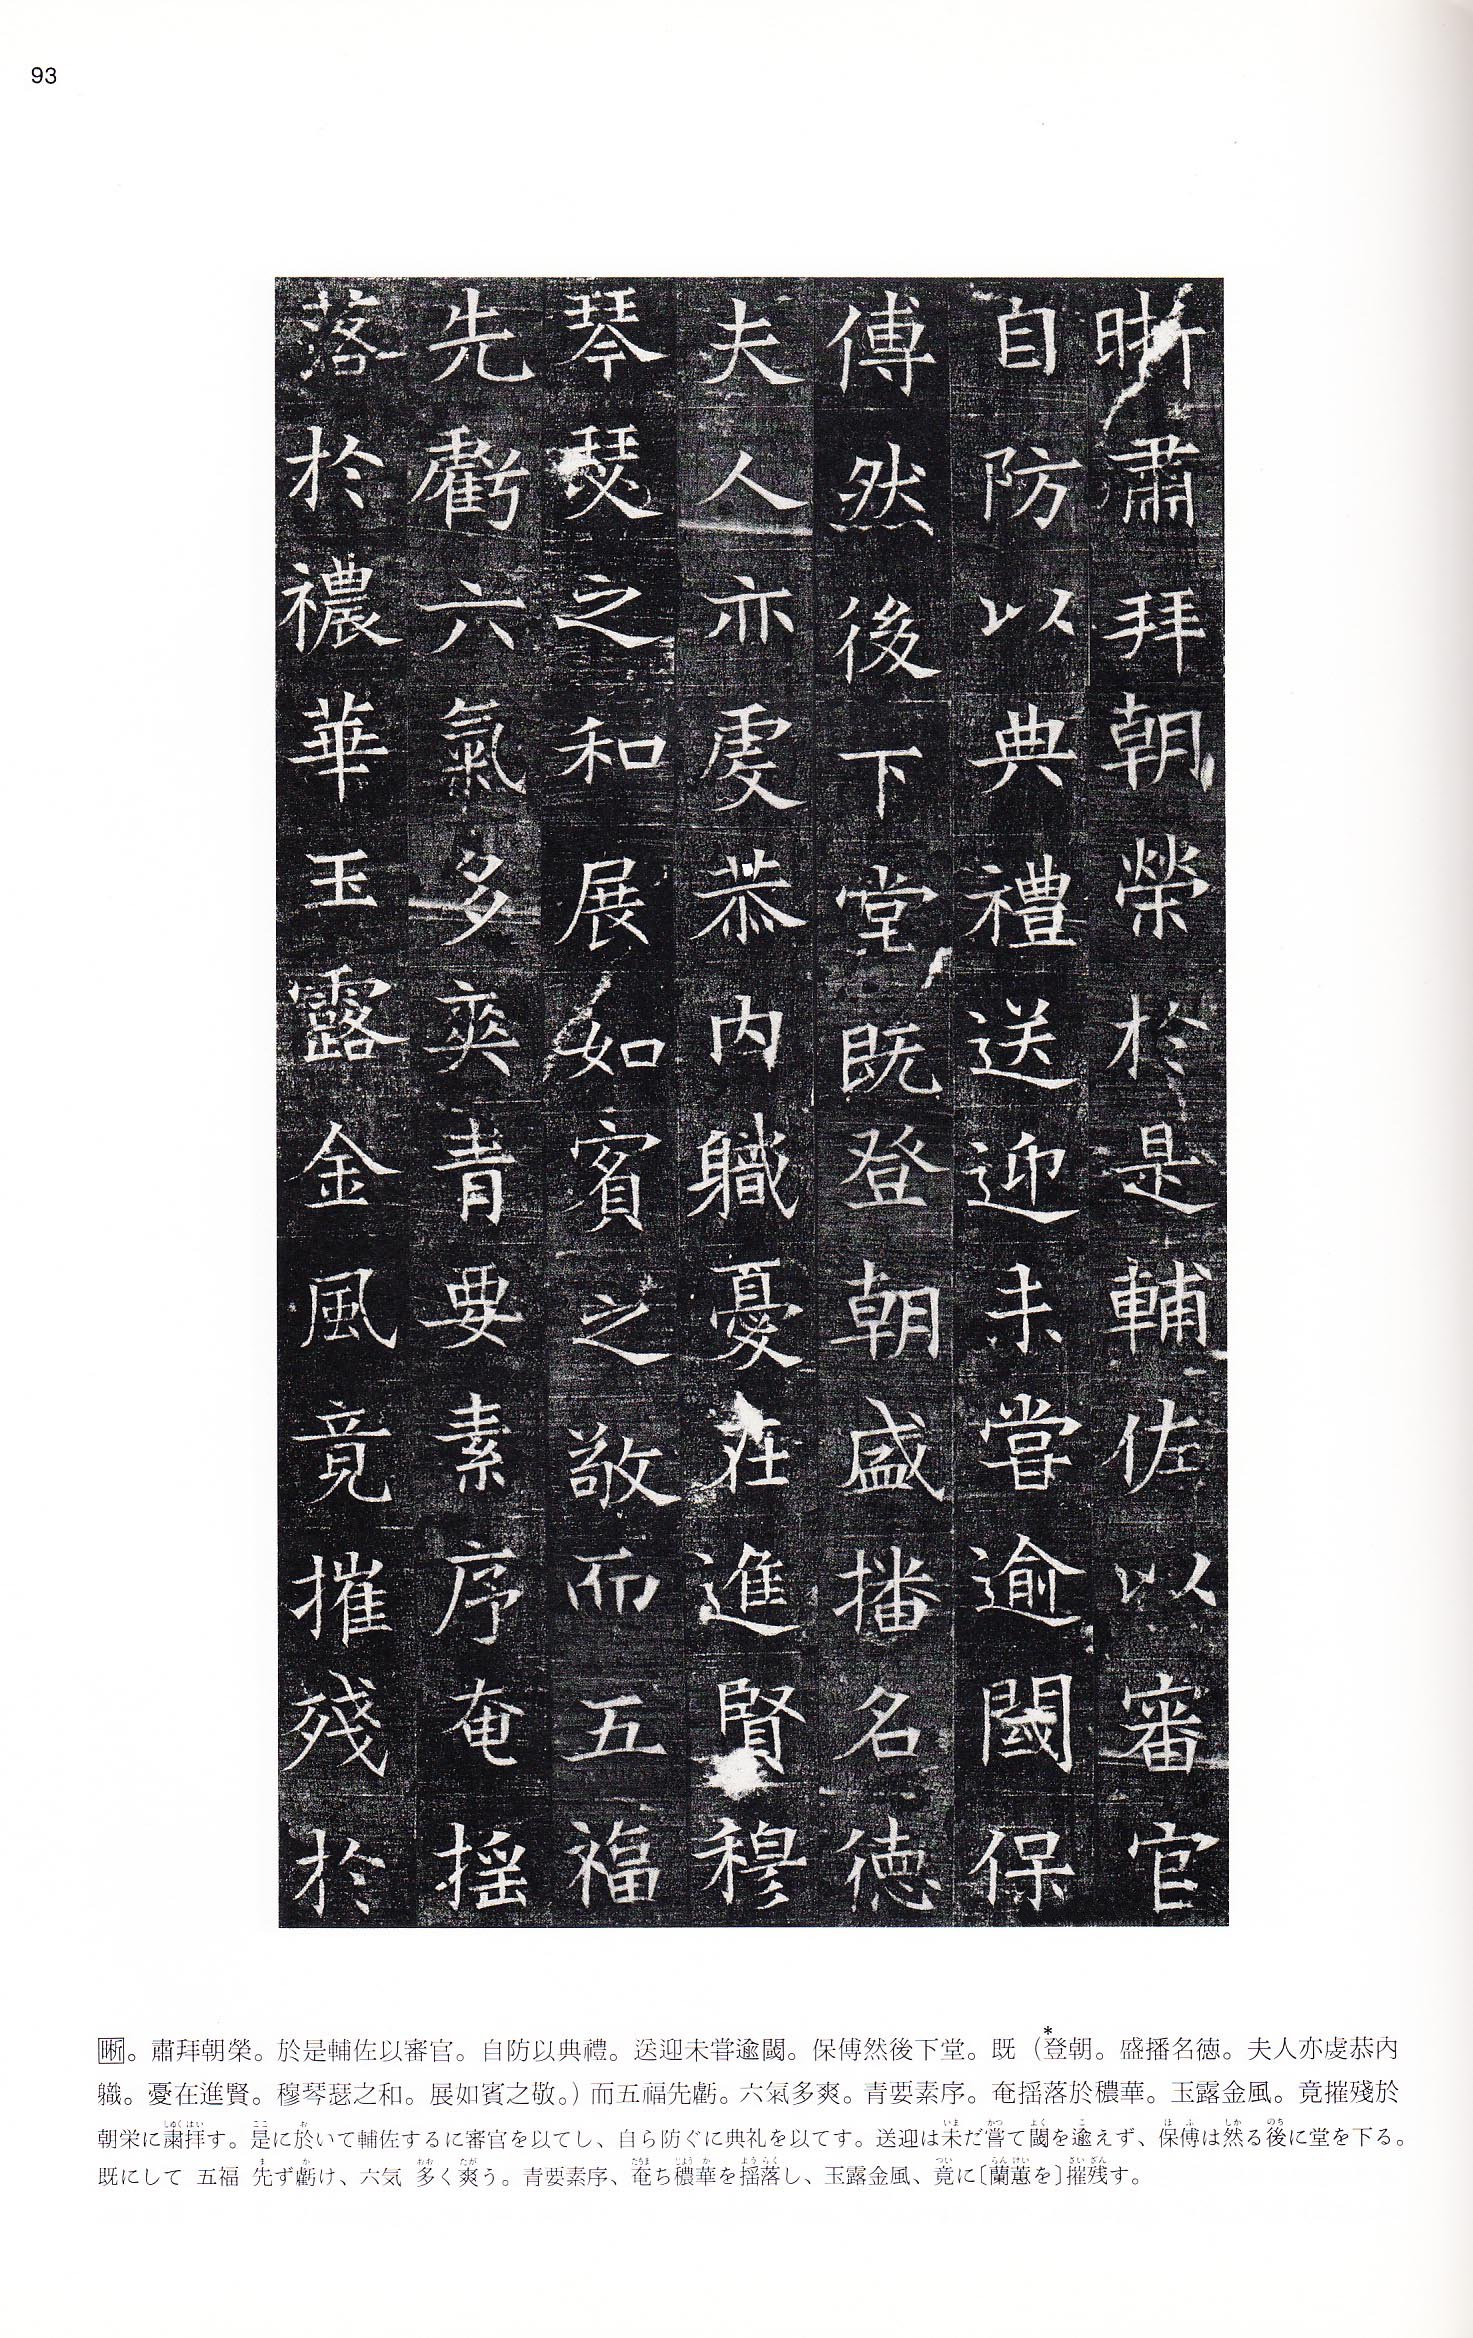 93
晣肅拜朝榮於是輔佐以審官
自防以典禮送迎未甞逾閾保
傅然後下堂既登朝盛播名徳
夫人亦虔恭内軄憂在進賢穆
琴瑟之和展如賓之敬而五福
先虧六氣多爽青要素序奄揺
落於穠華玉露金風竟摧殘於
晣。肅拜朝榮。於是輔佐以審官。自防以典禮。送迎未甞逾閾。保傅然後下堂。既（*登朝。盛播名徳。夫人亦虔恭内
軄。憂在進賢。穆琴瑟之和。展如賓之敬。）而五福先虧。六氣多爽。青要素序。奄揺落於穠華。玉露金風。竟摧殘於
朝栄に粛拝す。是に於いて輔佐するに審官を以てし、自ら防ぐに典礼を以てす。送迎は未だ嘗て閾を逾えず、保傅は然る後に堂を下る。
既にして 五福 先ず虧け、六気 多く爽う。青要素序、奄ち穠華を揺落し、玉露金風、竟に〔蘭蕙を〕摧残す。